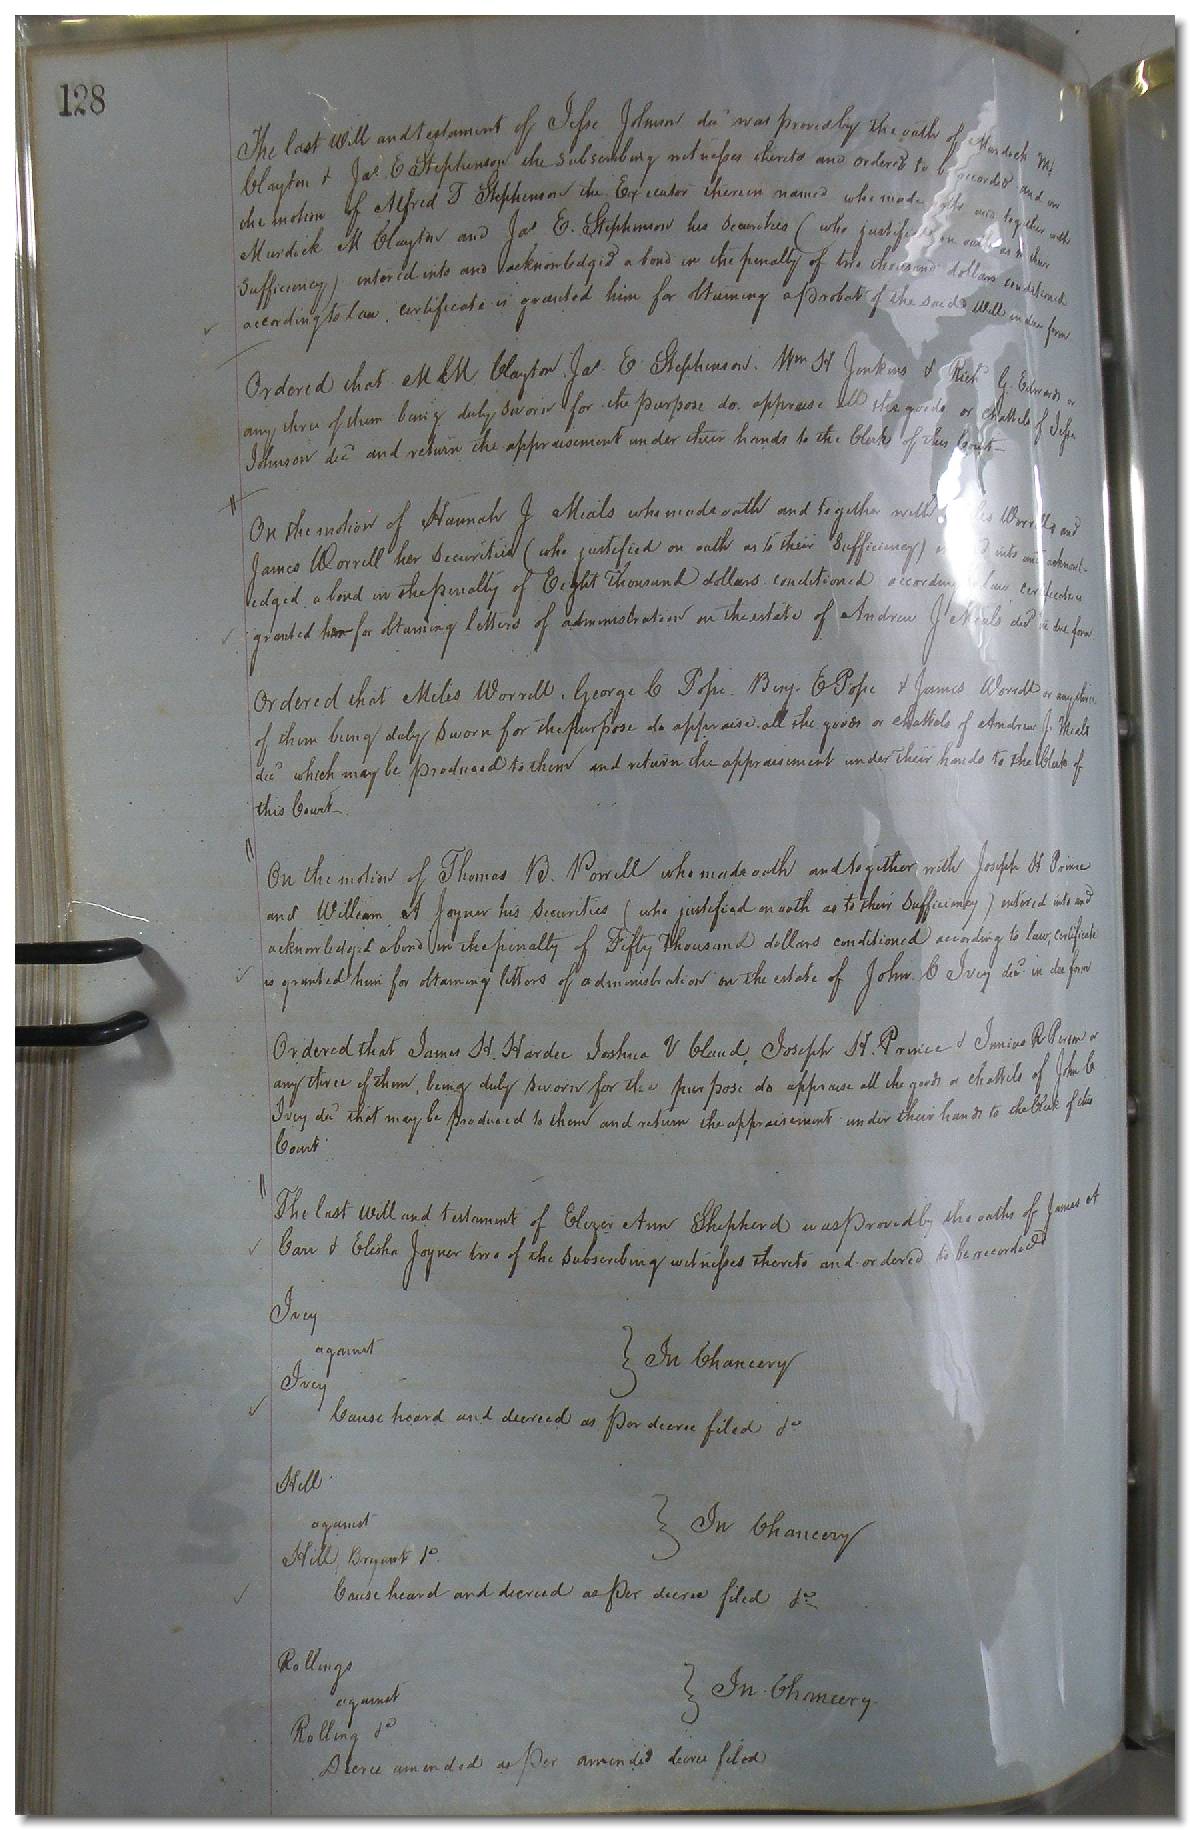 128
The last Will and testament of Jesse Johnson decd was proved by the oath of Murdick M
Clayton & Jas. E Stephenson the subscribing witnesses thereto and ordered to be recorded and on
the motion of Alfred T Stephenson the Executor therein named who made oath and together with
Murdick M Clayton and Jas E. Stephenson his Securities (who justified on oath as to their
Sufficiency) entered into and acknowledged a bond in the penalty of two thousand dollars conditioned
according to law. certificate is granted him for obtaining a probat of the said Will in due form
Ordered that M M Clayton. Jas. E Stephenson. Wm H Jenkins & Richd G. Edwards or
any three of them being duly sworn for the purpose do appraise all the goods or chattels of Jesse
Johnson decd and return the appraisement under their hands to the Clerk of this Court
On the motion of Hannah J Meals who made oath and together with Worrell and
James Worrell her Securities (who justified on oath as to their Sufficiency) into and acknowl-
edged a bond in the penalty of Eight Thousand dollars conditioned according to law certificate is
granted her for obtaining letters of administration on the estate of Andrew J Meals decd in due form
Ordered that Miles Worrell. George C Pope. Benj. E Pope & James Worrell or any three
of them being duly sworn for the purpose do appraise all the goods or chattels of Andrew J. Meals
decd which may be produced to them and return the appraisement under their hands to the Clerk of
this Court
On the motion of Thomas B. Worrell who made oath and together with Joseph H Prince
and William A Joyner his Securities (who justified on oath as to their Sufficiency) entered into and
acknowledged a bond in the penalty of Fifty Thousand dollars conditioned according to law, certificate
is granted him for obtaining letters of administration on the estate of John. C Ivey decd in due form
Ordered that James H. Hardee Joshua V Claud, Joseph H. Prince & Junius R Person or
any three of them, being duly sworn for the purpose do appraise all the goods or chattels of John C
Ivey decd that may be produced to them and return the appraisement under their hands to the Clerk of this
Court
The last Will and testament of Elizer Ann Shepherd was proved by the oaths of James A
Carr & Elisha Joyner two of the subscribing witnesses thereto and ordered to be recorded
Ivey
against
} In Chancery
Ivey
Cause heard and decreed as per decree filed &c
Hill
against
} In Chancery
Hill, Bryant &c.
Cause heard and decreed as per decree filed &c
Rollings
against
} In Chancery.
Rolling &c
Decree amended as per amended decree filed